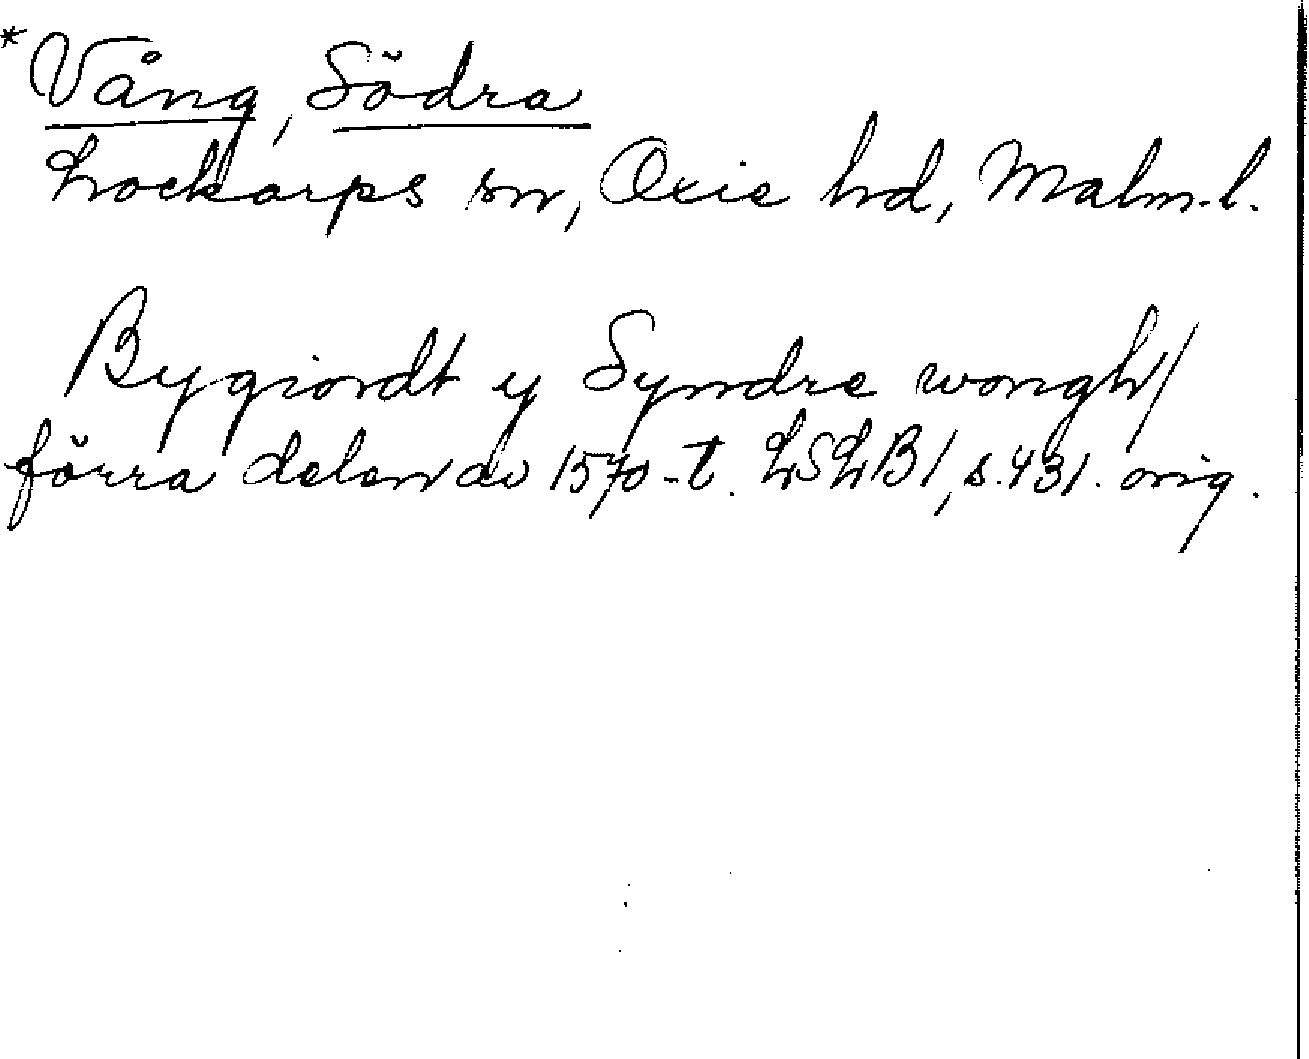 *Vång, Södra
Lockarps sn, Oxie hd, Malm.l.
Bygiordt y Syndre wongh/
förra delen av 1570-t. LSLB1, s.431. orig.